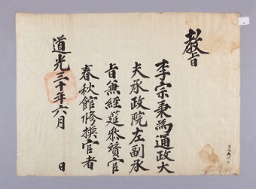 教旨
李宗秉爲通政大
夫承政院左副承
旨兼經筵參贊官
春秋館修撰官者
道光三十年六月 日